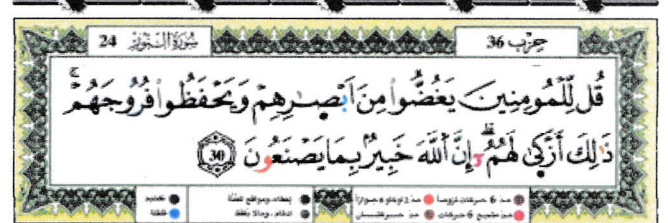 حزب 36 سورة النور 24
قُل لِّلْمُومِنِينَ يَغُضُّواْ مِنَ اَبْصٰ۪رِهِمْ وَيَحْفَظُواْ فُرُوجَهُمْۖ
ذَٰلِكَ أَزْكىٰ لَهُمُۥٓۖ إِنَّ اَللَّهَ خَبِيرُۢ بِمَا يَصْنَعُونَ 30